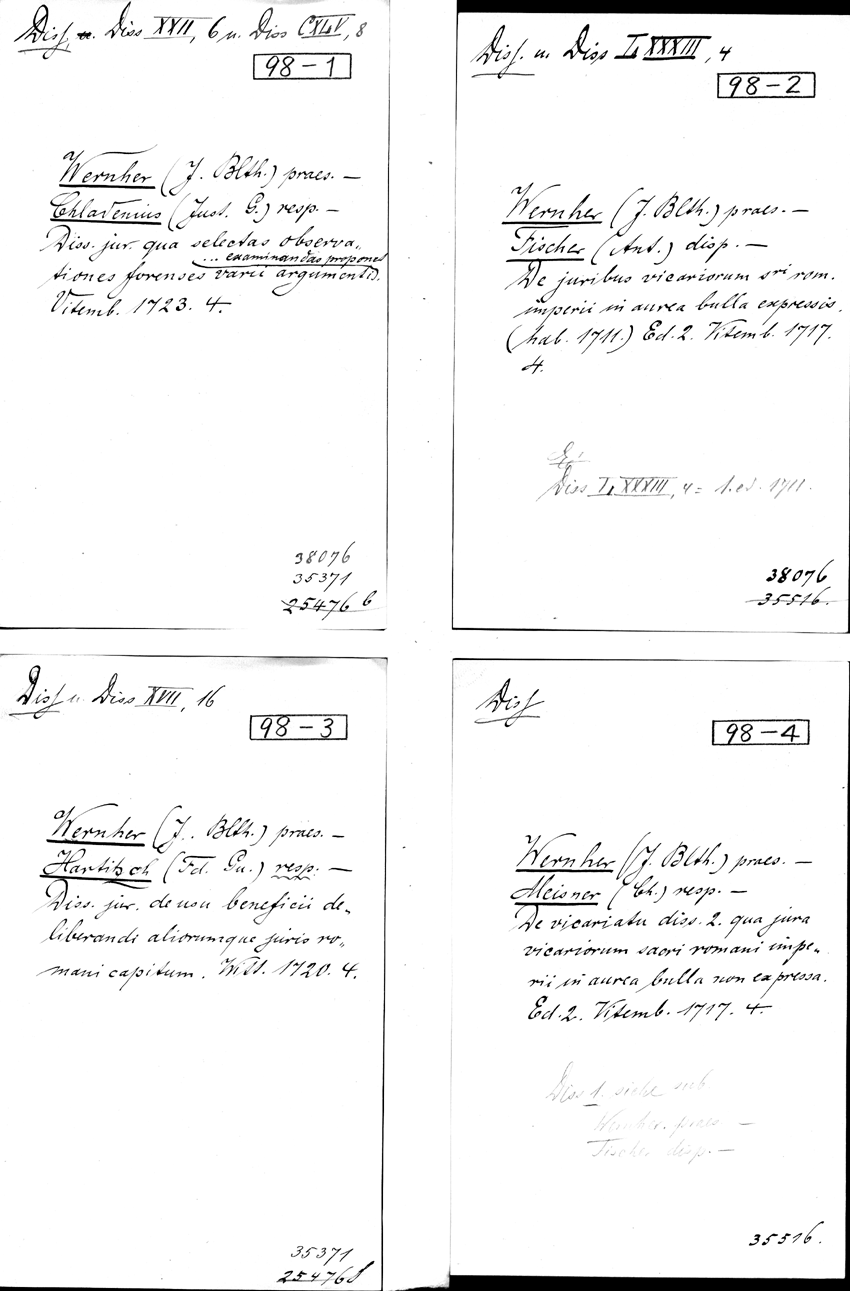 Diss. u. Diss XXII, 6 u. Diss CXLV, 8
98-1
Wernher (J. Blth.) praes. —
Chladenius (Just. G.) resp. —
Diss. jur. qua selectas observa„
... examinandas proponet
tiones forenses varii argumenti).
Vitemb. 1723. 4.
38076
35371
25476 b
Diss. u. Diss LXXXIII, 4
98-2
Wernher (J. Blth.) praes. —
Fischer (Ant.) disp. —
De juribus vicariorum sri rom.
imperii in aurea bulla expressis.
(hab. 1711.) Ed. 2. Vitemb. 1717.
4.
Diss LXXXIII, 4 = 1. ed. 1711.
38076
35516.
Diss u. Diss XVII, 16
98-3
Wernher (J. Blth.) praes. —
Hartitzsch (Fd. Gu.) resp. —
Diss. jur. de usu beneficii de„
liberandi aliorumque juris ro„
mani capitum. Witt. 1720. 4.
35371
25476
Diss
98-4
Wernher (J. Blth.) praes. —
Meisner (Ch.) resp. —
De vicariatu diss. 2. qua jura
vicariorum sacri romani impe„
rii in aurea bulla non expressa.
Ed. 2. Vitemb. 1717. 4.
Diss 1. siehe sub
Wernher. praes —
Fischer disp. —
35516.